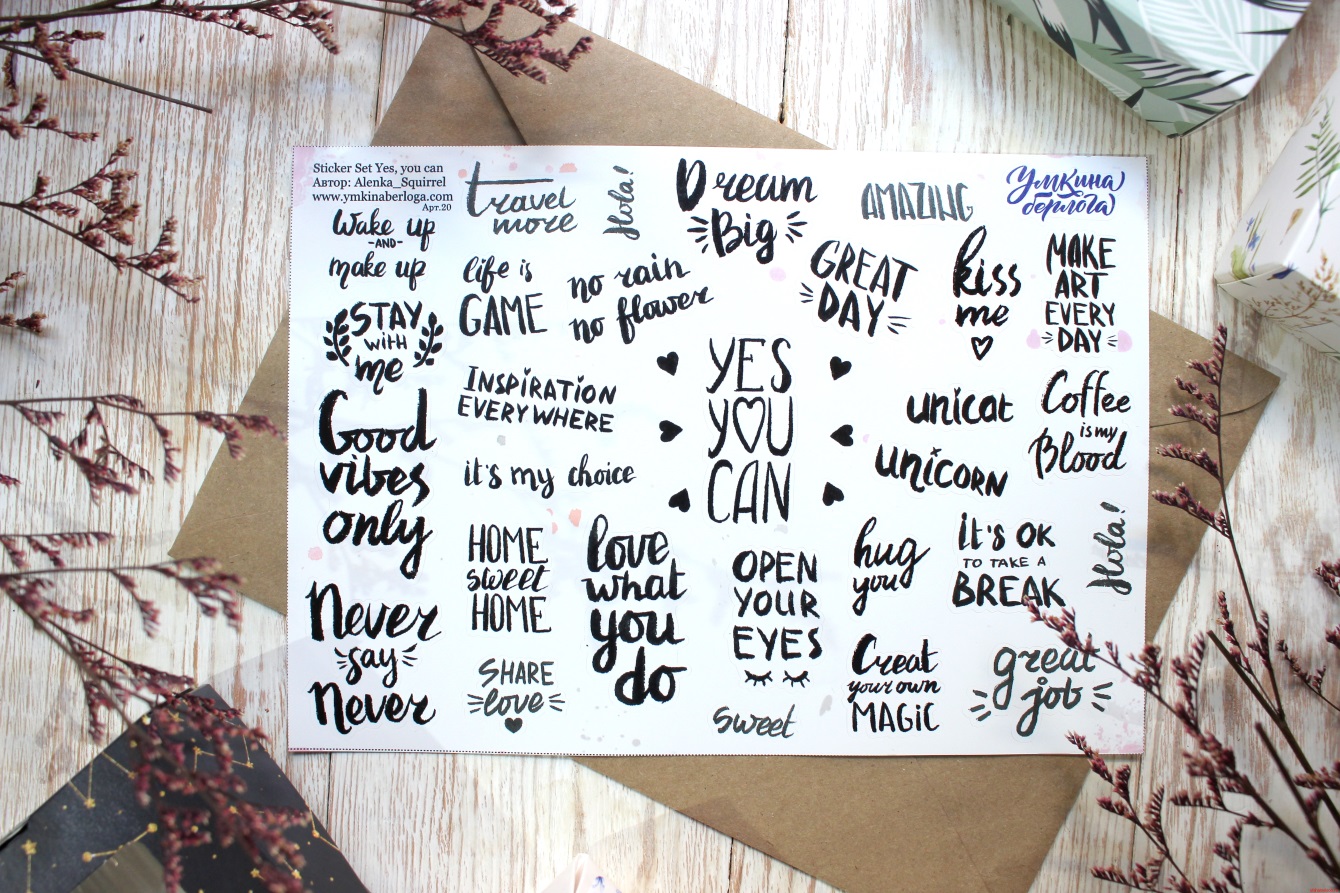 Sticker Set Yes, you can
Автор: Alenka_Squirrel
www.ymkinaberloga.com
Арт.20
travel
more
Hola!
Dream
Big
AMAZING
Умкина
берлога
Wake up
-AND-
make up
life is
GAME
no rain
no flower
GREAT
DAY
kiss
me
MAKE
ART
EVERY
DAY
STAY
with
me
INSPIRATION
EVERYWHERE
YES
YOU
CAN
unicat
unicorn
Coffee
is my
Blood
Good
vibes
only
it's my choice
HOME
sweet
HOME
love
what
you
do
OPEN
YOUR
EYES
hug
you
it's OK
TO TAKE A
BREAK
Hola!
Never
say
Never
SHARE
love
Sweet
Creat
your own
MAGIC
great
job